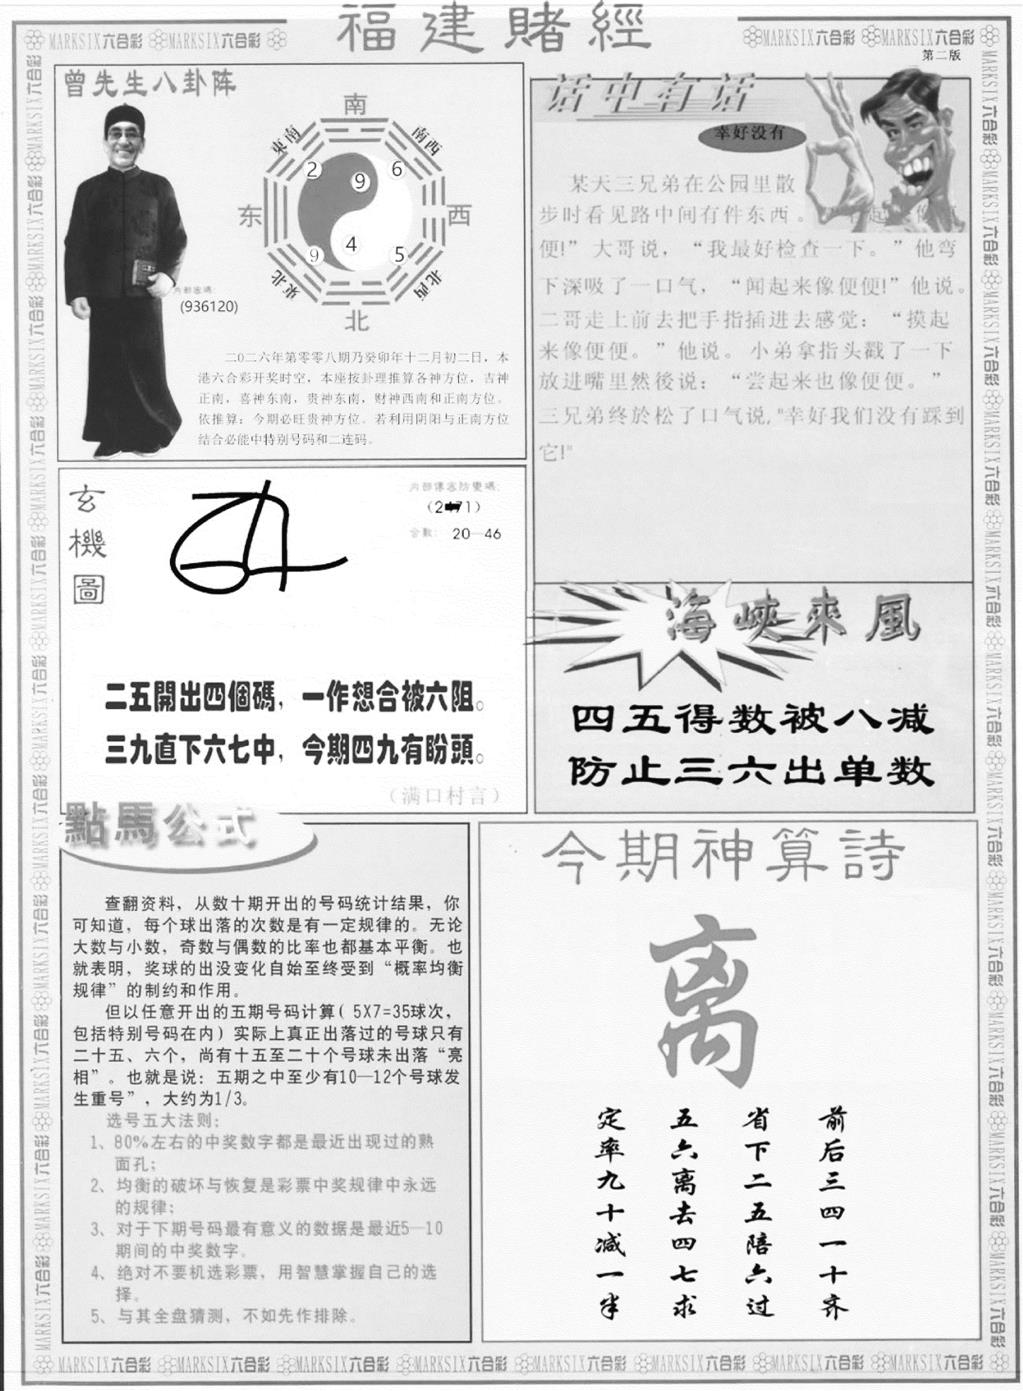 福建賭經
MARKSIX六合彩 MARKSIX六合彩
MARKSIX六合彩 MARKSIX六合彩
第二版
曾先生八卦阵
南
東南
南西
东
西
東北
北西
北
2
9
6
4
9
5
内部密碼:
(936120)
二〇二六年第零零八期乃癸卯年十二月初二日，本
港六合彩开奖时空，本座按卦理推算各神方位，吉神
正南，喜神东南，贵神东南，财神西南和正南方位。
依推算：今期必旺贵神方位。若利用阴阳与正南方位
结合必能中特别号码和二连码。
话中有话
幸好没有
某天三兄弟在公园里散
步时看见路中间有件东西。
便!” 大哥说，“我最好检查一下。”他弯
下深吸了一口气，“闻起来像便便!”他说。
二哥走上前去把手指插进去感觉：“摸起
来像便便。”他说。小弟拿指头戳了一下
放进嘴里然後说：“尝起来也像便便。”
三兄弟终於松了口气说,"幸好我们没有踩到
它!"
玄機圖
(2 71)
合數: 20—46
二五開出四個碼，一作想合被六阻。
三九直下六七中，今期四九有盼頭。
（满口村言）
海峽來風
四五得数被八减
防止三六出单数
點馬公式
查翻资料，从数十期开出的号码统计结果，你
可知道，每个球出落的次数是有一定规律的。无论
大数与小数，奇数与偶数的比率也都基本平衡。也
就表明，奖球的出没变化自始至终受到“概率均衡
规律”的制约和作用。
但以任意开出的五期号码计算( 5X7=35球次，
包括特别号码在内）实际上真正出落过的号球只有
二十五、六个，尚有十五至二十个号球未出落“亮
相”。也就是说：五期之中至少有10—12个号球发
生重号”，大约为1/3。
选号五大法则：
1、80%左右的中奖数字都是最近出现过的熟
面孔；
2、均衡的破坏与恢复是彩票中奖规律中永远
的规律；
3、对于下期号码最有意义的数据是最近5—10
期间的中奖数字。
4、绝对不要机选彩票，用智慧掌握自己的选
择。
5、与其全盘猜测，不如先作排除。
今期神算詩
离
前后三四一十齐
省下二五陪六过
五六离去四七求
定率九十减一半
MARKSIX六合彩 MARKSIX六合彩 MARKSIX六合彩 MARKSIX六合彩 MARKSIX六合彩 MARKSIX六合彩 MARKSIX六合彩 MARKSIX六合彩